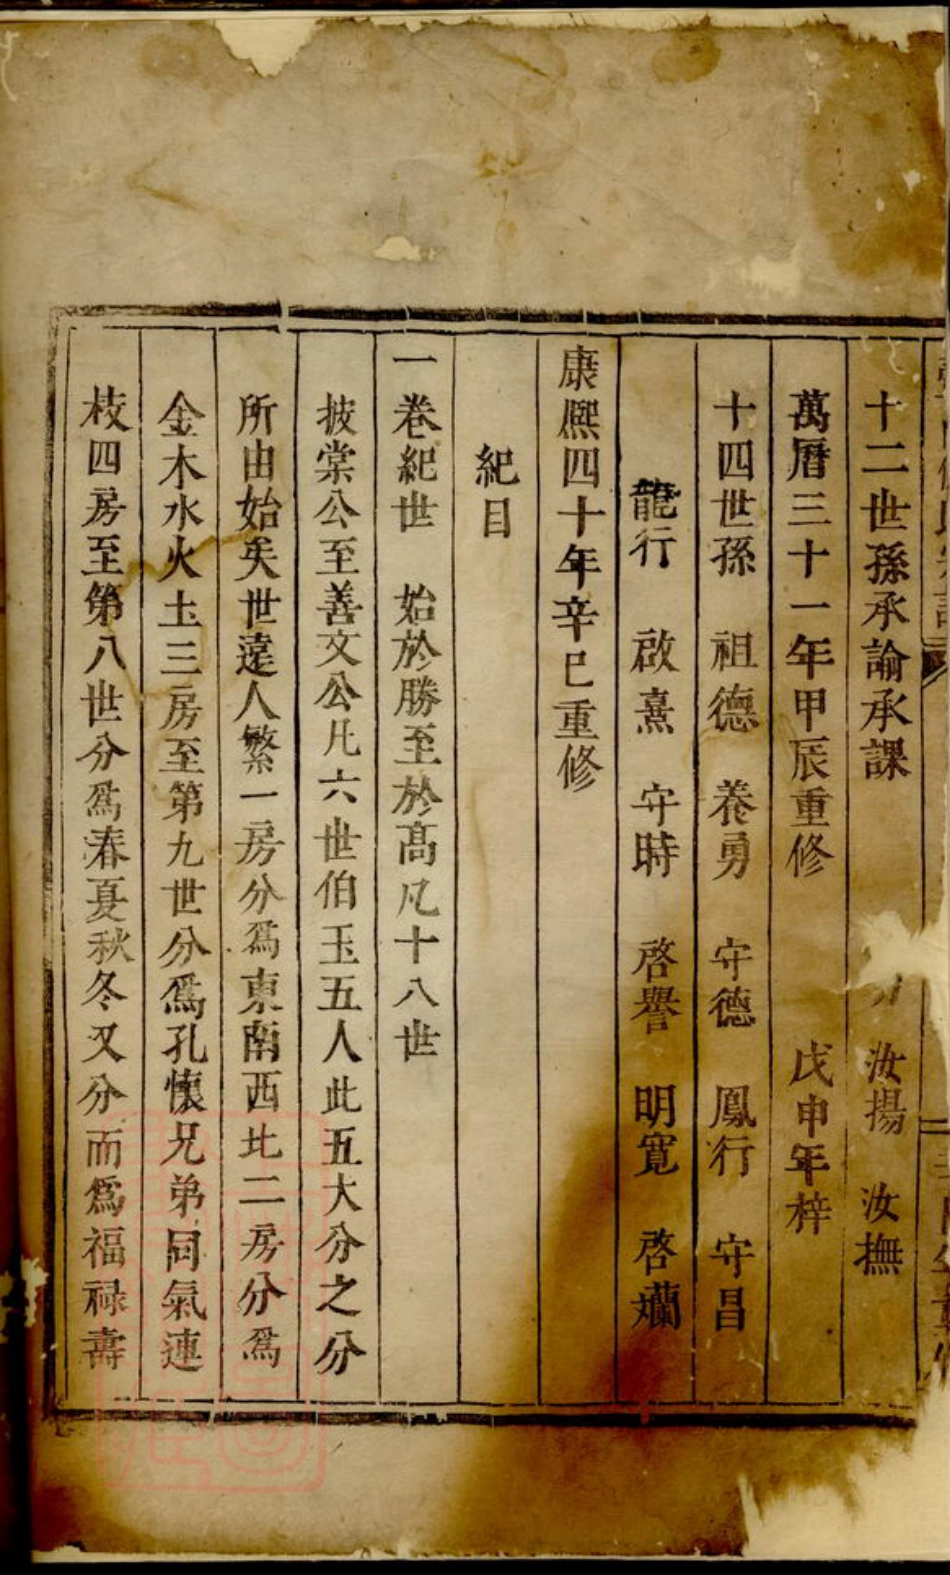 十二世孫承論承課 汝揚 汝撫
萬曆三十一年甲辰重修 戊申年梓
十四世孫 祖德 養勇 守德 鳳行 守昌
龍行 啟熹 守時 啓譽 明寬 啓斕
康熈四十年辛巳重修
紀目
一卷紀世 始於勝至於髙凡十八世
披棠公至善文公凡六世伯玉五人此五大分之分
所由始矣世遠人繁一房分爲東南西北二房分爲
金木水火土三房至第九世分爲孔懷兄弟同氣連
枝四房至第八世分爲春夏秋冬又分而爲福禄壽